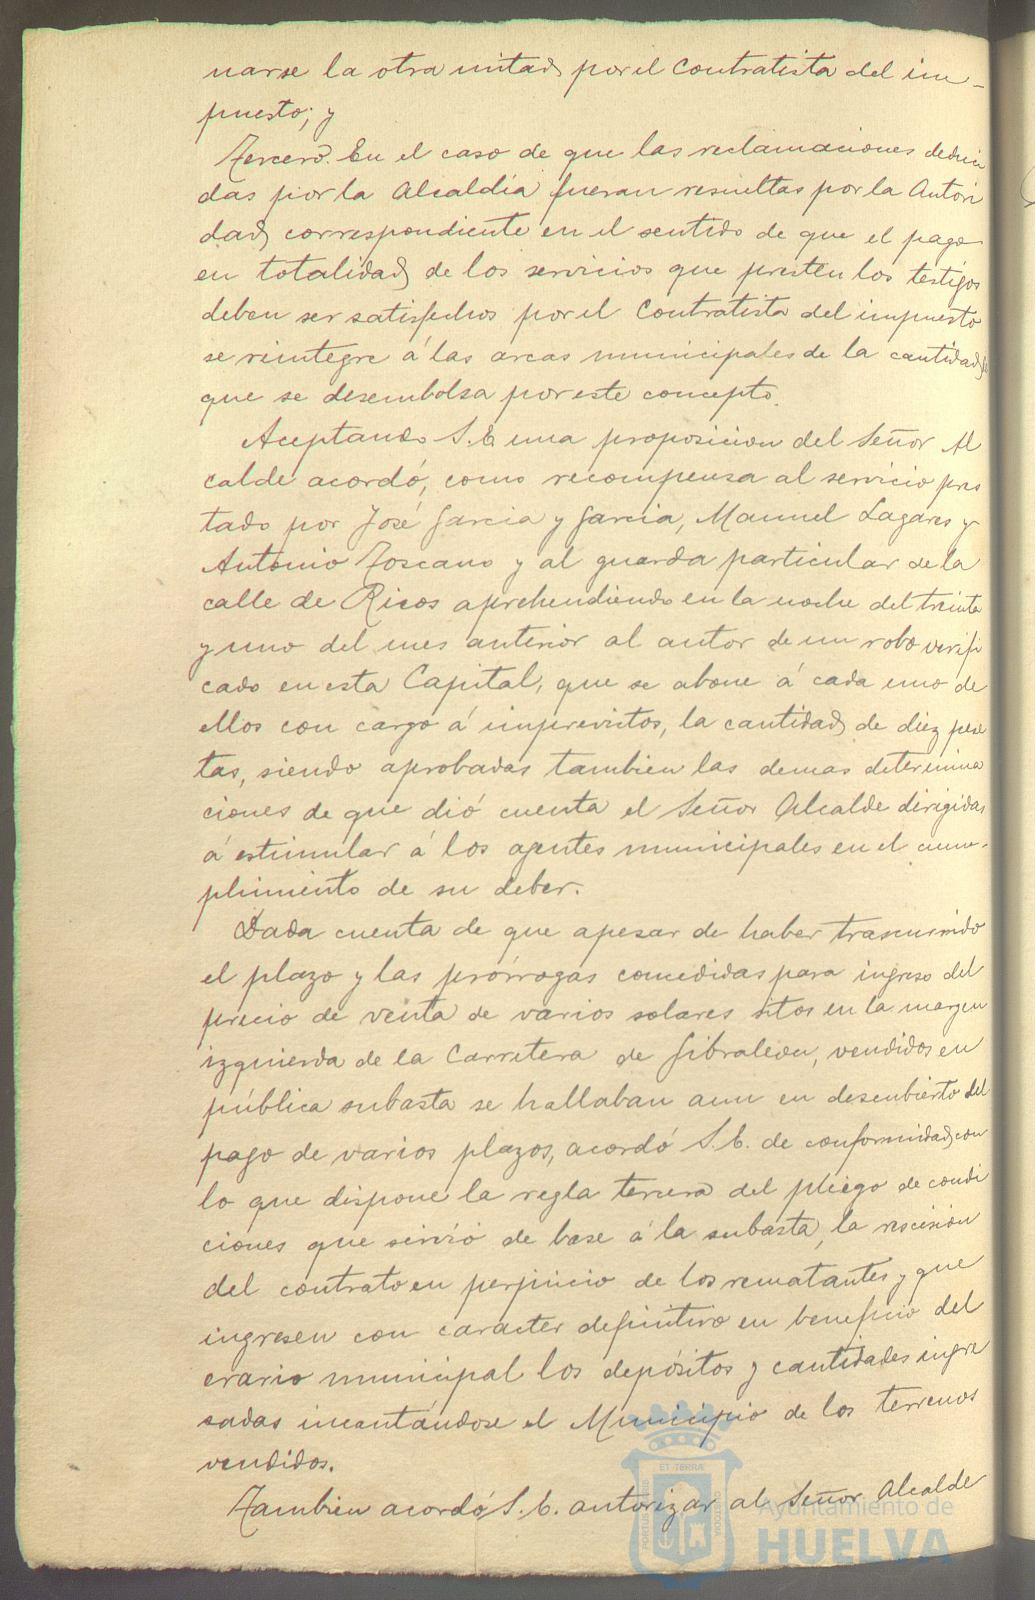 narse la otra mitad por el Contratista del im-
puesto; y
Tercero. En el caso de que las reclamaciones deduci
das por la Alcaldía fueran resueltas por la Autori
dad correspondiente en el sentido de que el pago
en totalidad de los servicios que presten los testigos
deben ser satisfechos por el Contratista del impuesto
se reintegre á las arcas municipales de la cantidad
que se desembolsa por este concepto.
Aceptando S. E. una proposicion del Señor Al
calde acordó, como recompensa al servicio pres
tado por José Garcia y Garcia, Manuel Lagares y
Antonio Toscano y al guarda particular de la
calle de Ricos aprehendiendo en la noche del treinta
y uno del mes anterior al autor de un robo verifi
cado en esta Capital, que se abone á cada uno de
ellos con cargo á imprevistos, la cantidad de diez pese
tas, siendo aprobadas tambien las demas determina
ciones de que dió cuenta el Señor Alcalde dirigidas
á estimular á los agentes municipales en el cum-
plimiento de su deber.
Dada cuenta de que apesar de haber trascurrido
el plazo y las prórrogas concedidas para ingreso del
precio de venta de varios solares sitos en la margen
izquierda de la Carretera de Gibraleon, vendidos en
pública subasta se hallaban aun en descubierto del
pago de varios plazos, acordó S. E. de conformidad con
lo que dispone la regla tercera del pliego de condi
ciones que sirvió de base á la subasta, la rescisión
del contrato en perjuicio de los rematantes y que
ingresen con carácter definitivo en beneficio del
erario municipal los depósitos y cantidades ingre
sadas incautándose el Municipio de los terrenos
vendidos.
Tambien acordó S. E. autorizar al Señor Alcalde
Ayuntamiento de
HUELVA